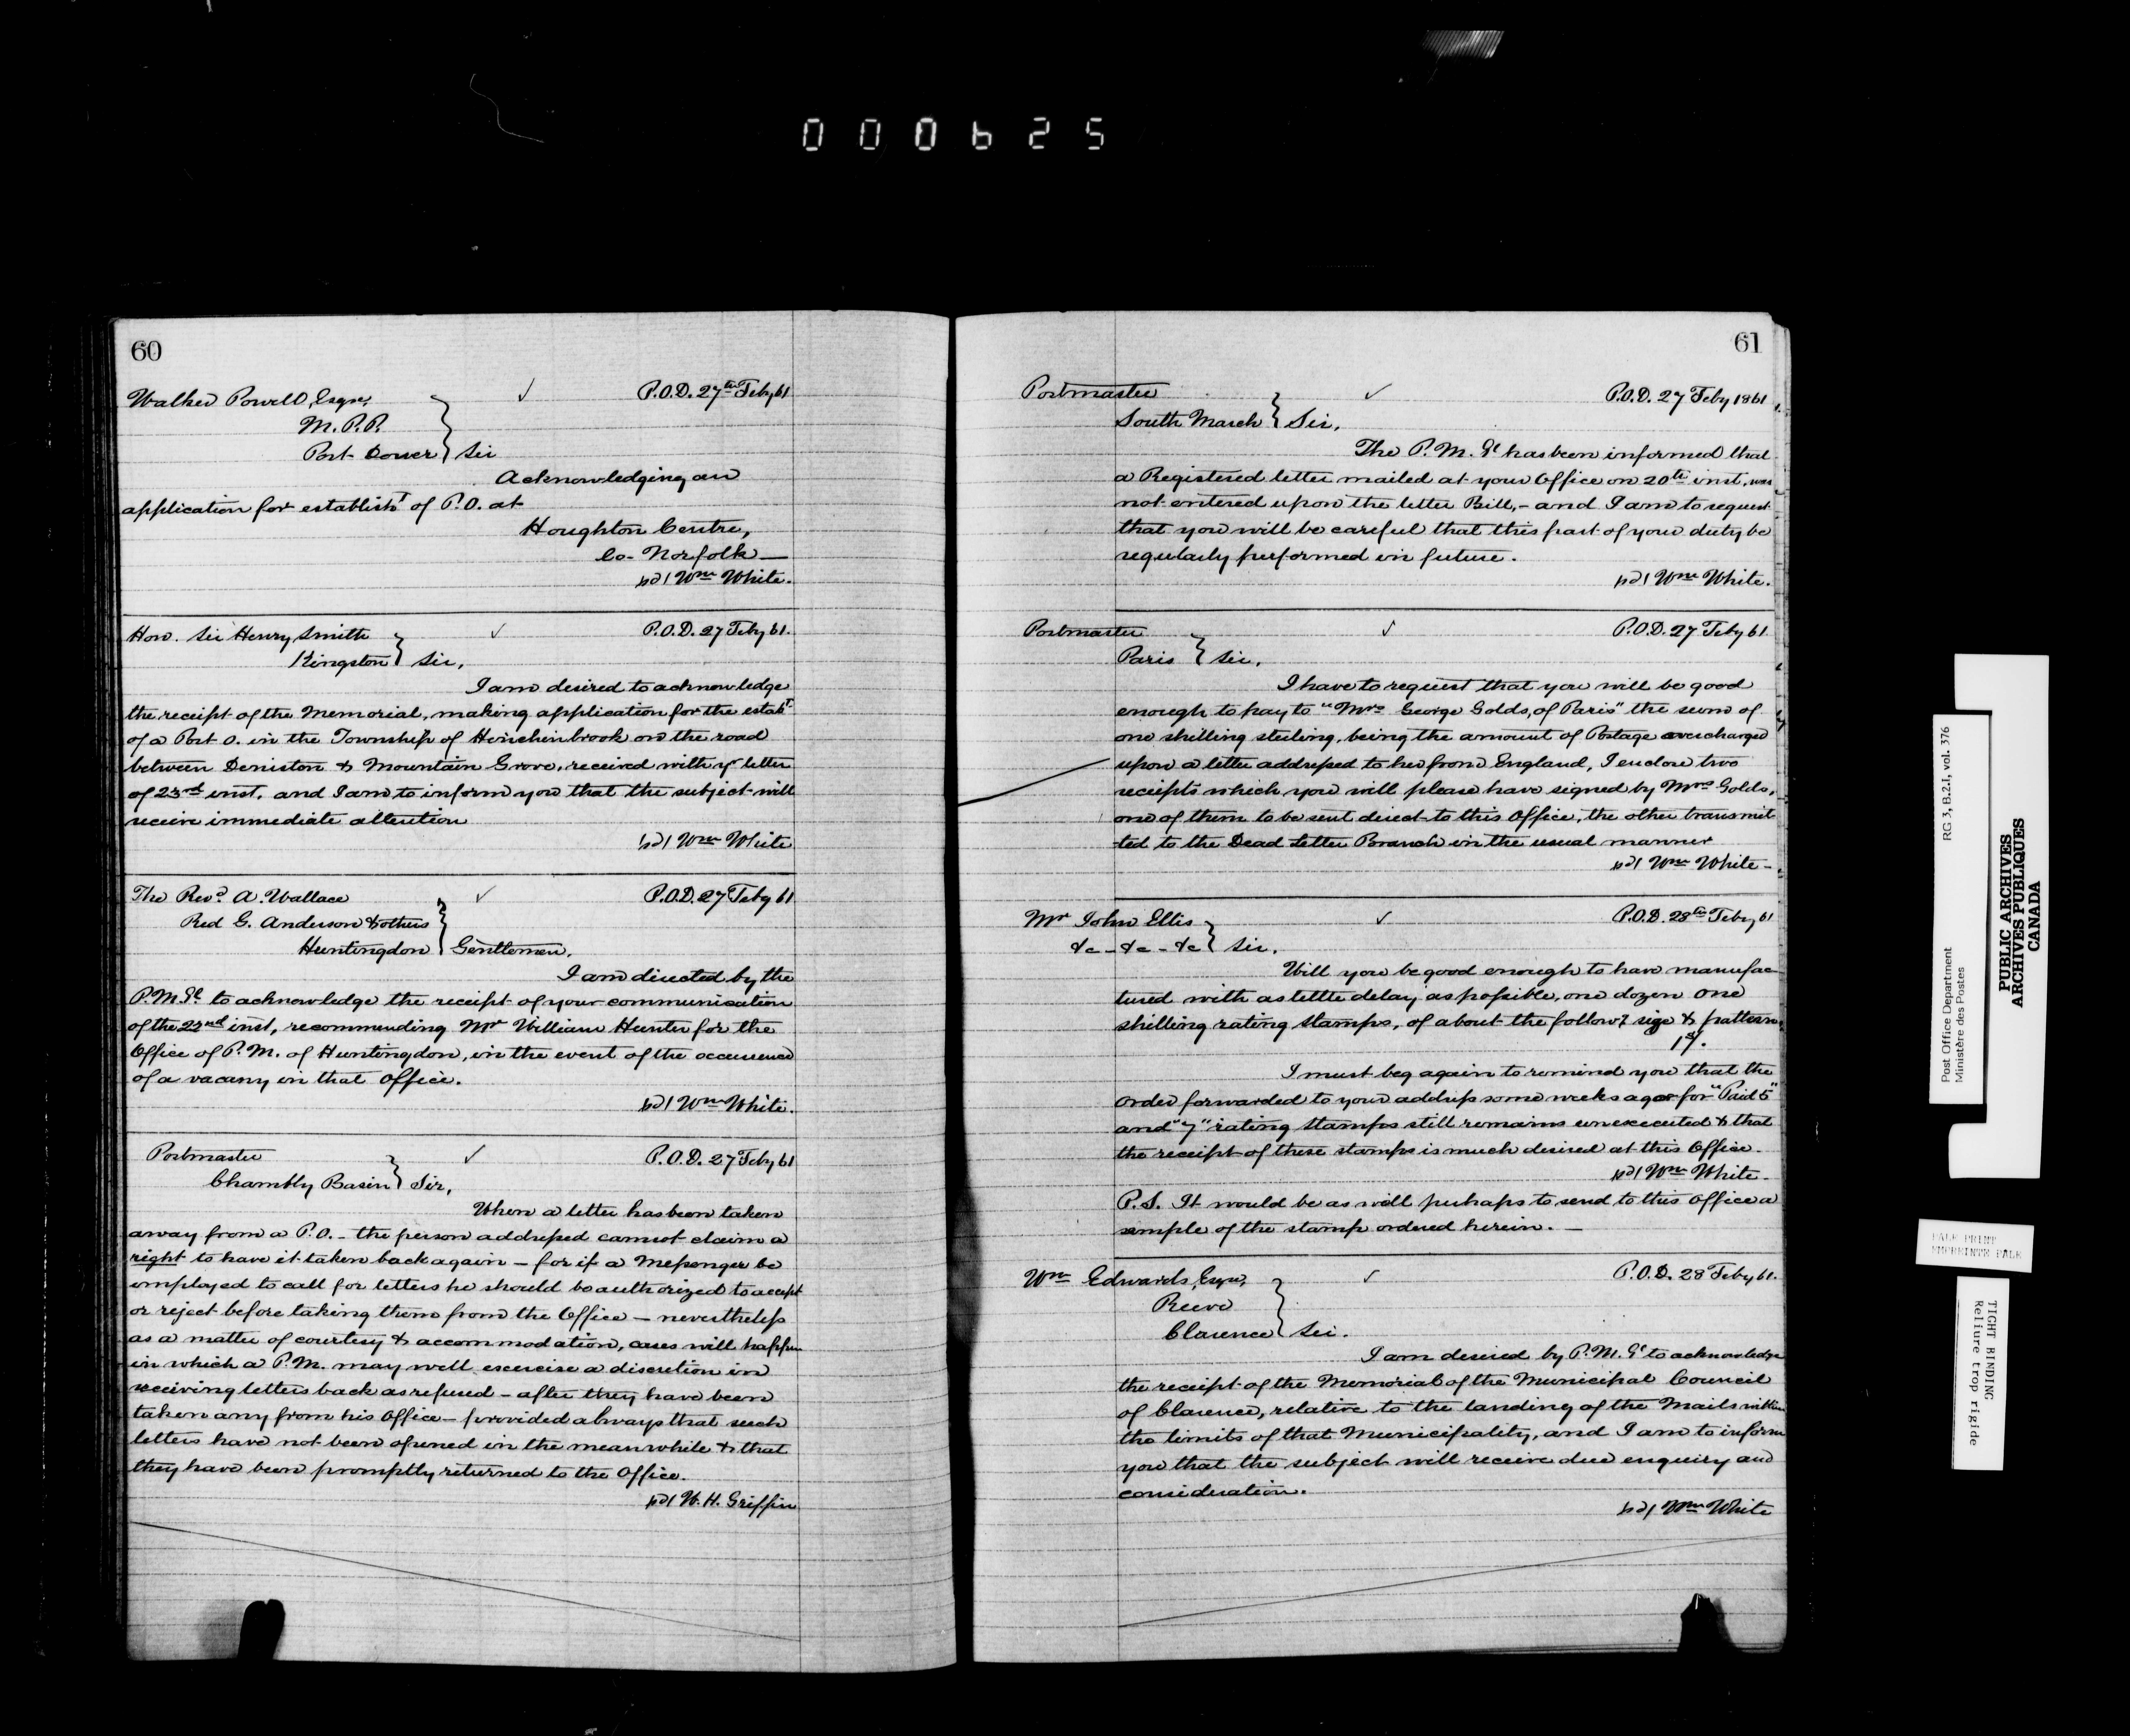 000625
60
Walker Powell, Esqre,
M.P.P.
Port Dover } Sir
P.O.D. 27th Feby 61
Acknowledging an
application for establisht of P.O. at
Houghton Centre,
Co- Norfolk —
sgd/ Wm White.
Hon. Sir Henry Smith
Kingston } Sir,
P.O.D. 27 Feby 61.
I am desired to acknowledge
the receipt of the Memorial, making application for the estabt
of a Post O. in the Township of Hinchinbrook on the road
between Deniston & Mountain Grove, received with yr letter
of 23rd inst. and I am to inform you that the subject will
receive immediate attention
sgd/ Wm White
The Revd A. Wallace
Red G. Anderson & others
Huntingdon } Gentlemen,
P.O.D. 27 Feby 61
I am directed by the
P.M.Gl to acknowledge the receipt of your communication
of the 22nd inst, recommending Mr William Hunter for the
Office of P.M. of Huntingdon, in the event of the occurrence
of a vacany in that Office.
sgd/ Wm White.
Postmaster
Chambly Basin } Sir,
P.O.D. 27 Feby 61
When a letter has been taken
away from a P.O. – the person addressed cannot claim a
right to have it taken back again – for if a Messenger be
employed to call for letters he should be authorized to accept
or reject before taking them from the Office – nevertheless
as a matter of courtesy & accommodation, cases will happen
in which a P.M. may well exercise a discretion in
receiving letters back as refused – after they have been
taken any from his Office – provided always that such
letters have not been opened in the meanwhile & that
they have been promptly returned to the Office.
sgd/ W. H. Griffin
61
Postmaster
South March } Sir,
P.O.D. 27 Feby 1861
The P.M.Gl has been informed that
a Registered letter mailed at your Office on 20th inst, was
not entered upon the letter Bill, – and I am to request
that you will be careful that this part of your duty be
regularly performed in future.
sgd/ Wm White.
Postmaster
Paris } Sir,
P.O.D. 27 Feby 61
I have to request that you will be good
enough to pay to "Mrs George Golds, of Paris" the sum of
one shilling sterling, being the amount of Postage overcharged
upon a letter addressed to her from England, I enclose two
receipts which you will please have signed by Mrs Golds,
one of them to be sent direct to this Office, the other transmit
ted to the Dead Letter Branch in the usual manner
sgd/ Wm White –
Mr John Ellis
&c – &c – &c } Sir.
P.O.D. 28th Feby 61
Will you be good enough to have manufac-
tured with as little delay as possible, one dozen one
shilling rating stamps, of about the followg size & pattern,
1s/.
I must beg again to remind you that the
order forwarded to your address some weeks ago for "Paid 5"
and "7" rating stamps still remains unexecuted & that
the receipt of these stamps is much desired at this Office.
sgd/ Wm White.
P.S. It would be as well perhaps to send to this Office a
sample of the stamp ordered herein. —
Wm Edwards, Esqre,
Reeve
Clarence } Sir.
P.O.D. 28 Feby 61.
I am desired by P.M.Gl to acknowledge
the receipt of the Memorial of the Municipal Council
of Clarence, relative to the landing of the Mails within
the limits of that Municipality, and I am to inform
you that the subject will receive due enquiry and
consideration.
sgd/ Wm White
Post Office Department
Ministère des Postes
RG 3, B.2.1, vol. 376
PUBLIC ARCHIVES
ARCHIVES PUBLIQUES
CANADA
PALE PRINT
EMPREINTE PALE
TIGHT BINDING
Reliure trop rigide